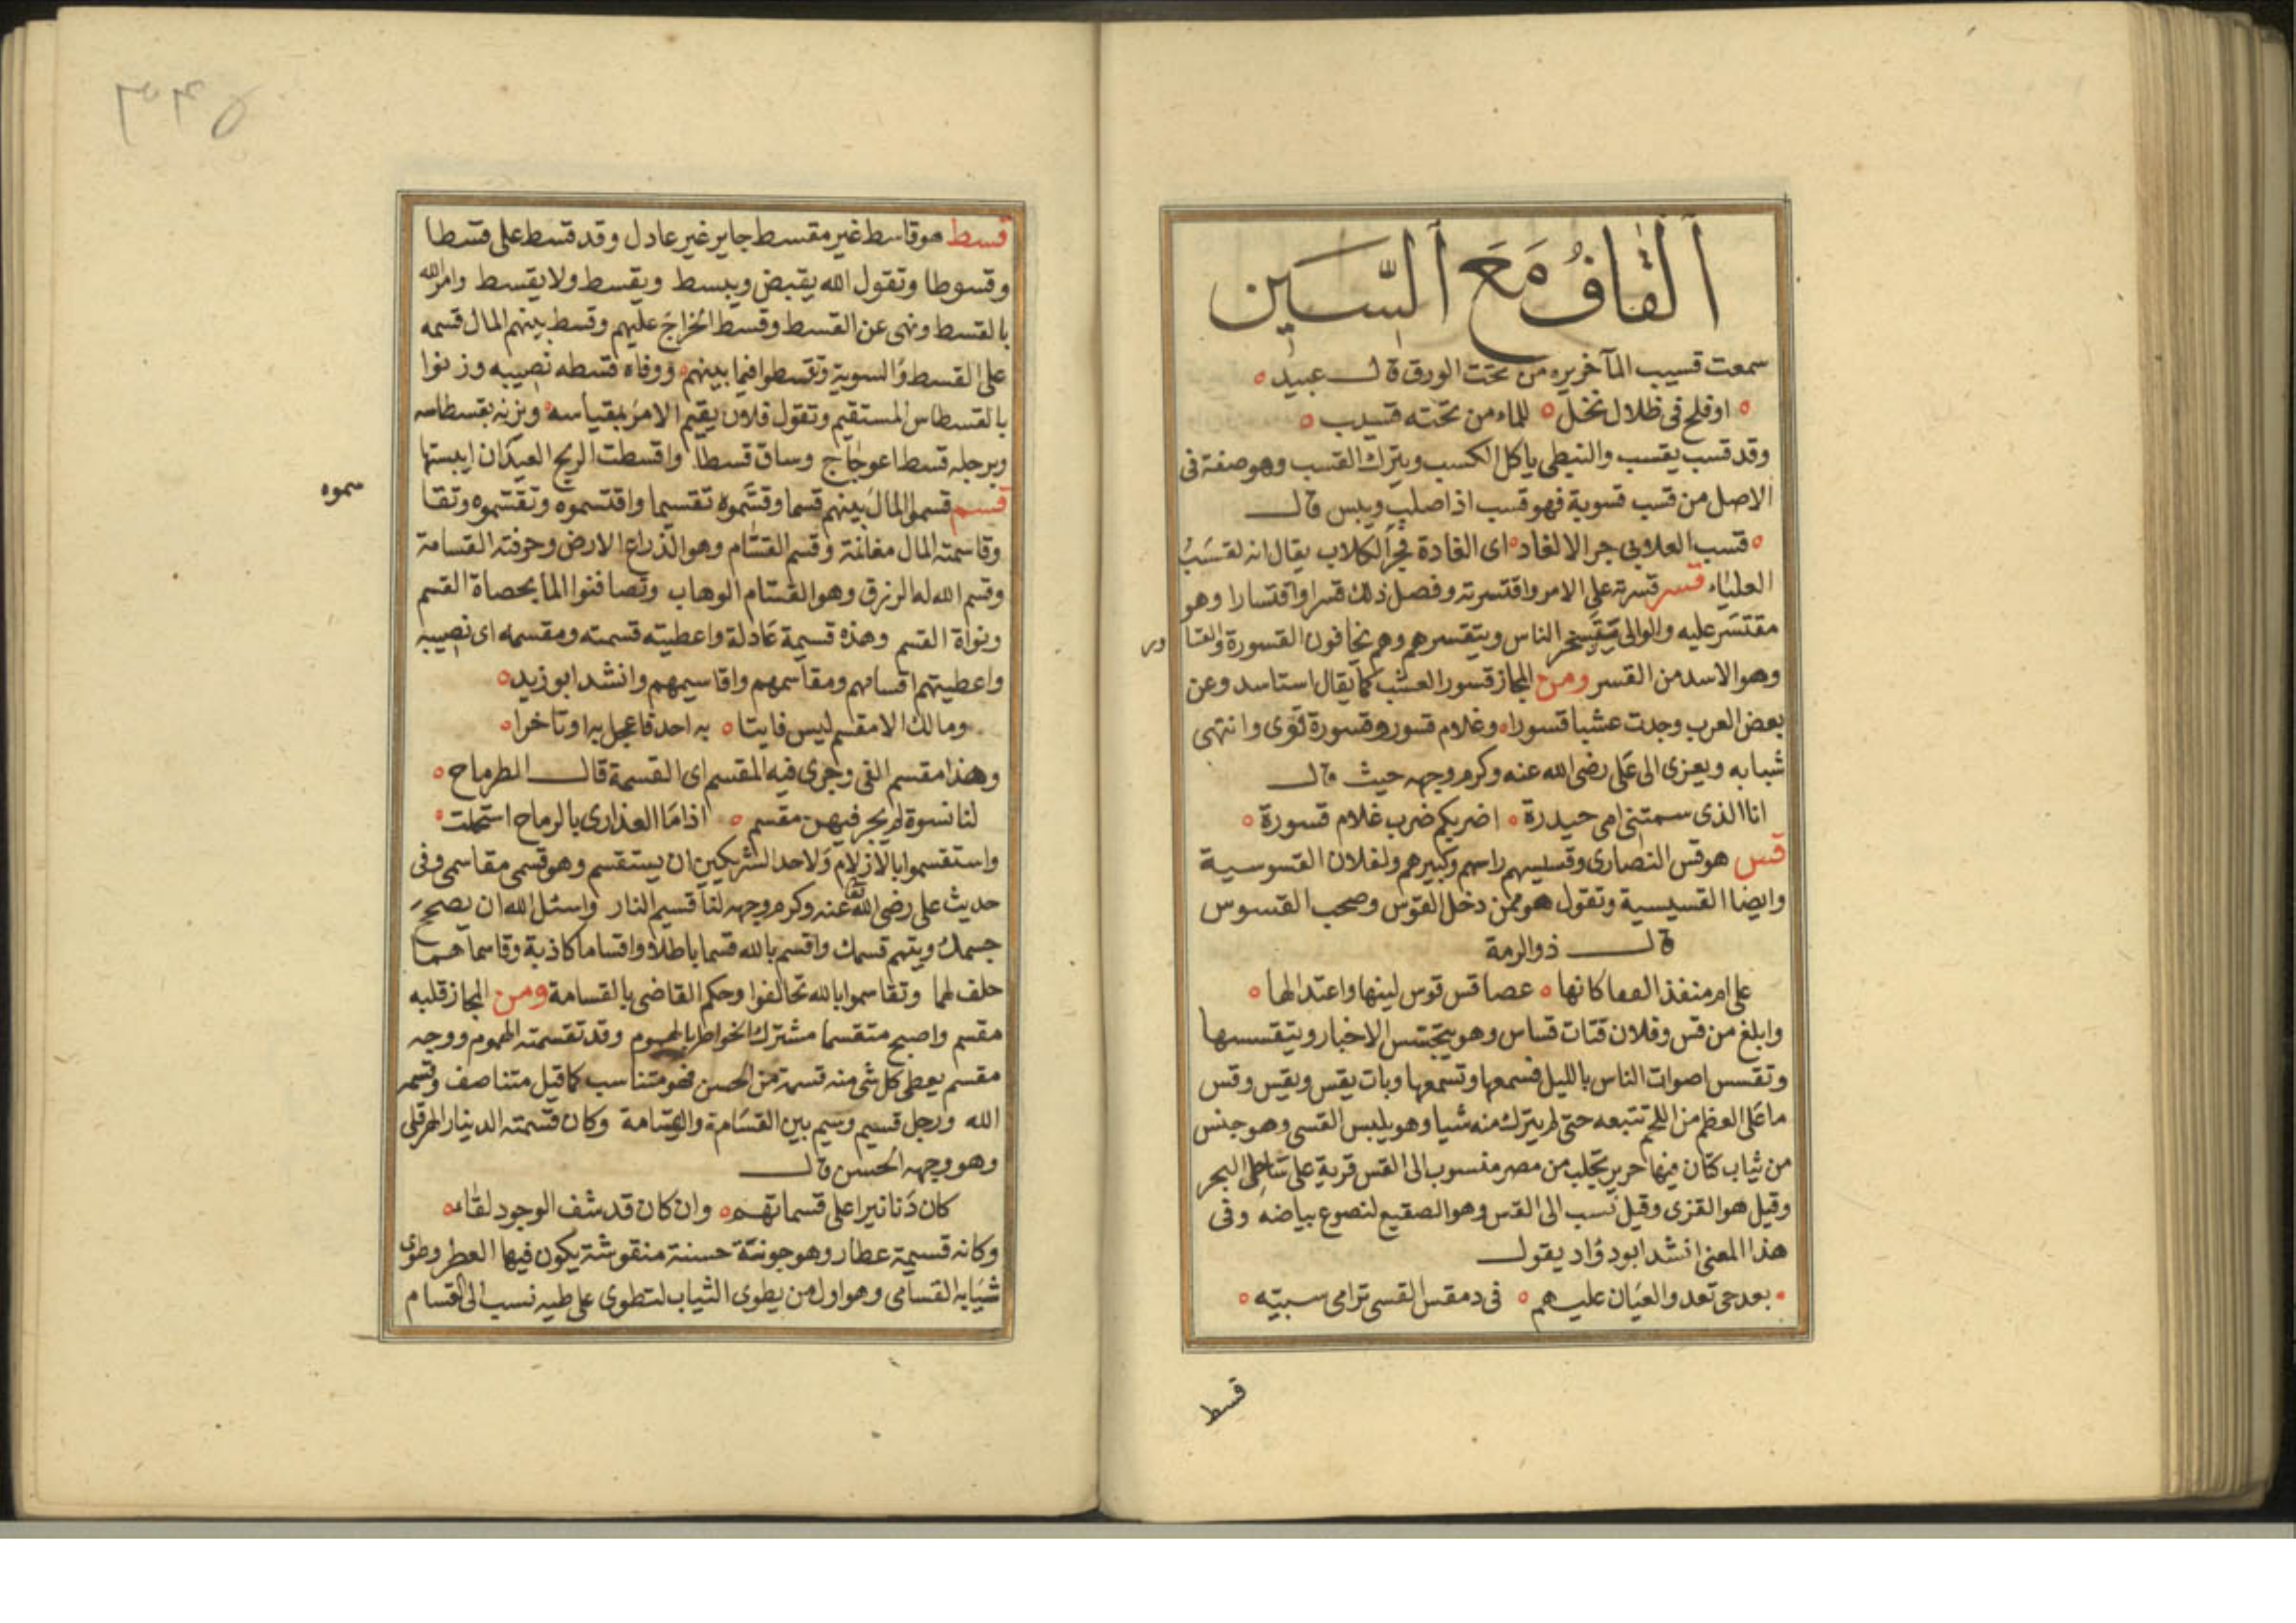 القاف مع السين
سمعت قسيب الماء خريره من تحت الورق قال عبيد
او فلج في ظلال نخل للماء من تحته قسيب
وقد قسب يقسب والنبطي ياكل الكسب ويترك القسب وهو صفة في
الاصل من قسب قسوبة فهو قسب اذا صلب ويبس قال
قسب العلابي جر الالغاد اى الغادة جر الكلاب يقال انه لقسب
العلياء قسر قسرته على الامر واقتسرته وفصل ذلك قسرا واقتسارا وهو
مقتسر عليه والوالى يتسخر الناس ويتقسرهم وهم يخافون القسورة والقسا
ور
وهو الاسد من القسر ومن المجاز قسور العشب كما يقال استاسد وعن
بعض العرب وجدت عشبا قسورا وغلام قسور وقسورة قوى وانتهى
شبابه ويعزى الى على رضى الله عنه وكرم وجهه حيث قال
انا الذى سمتنى امى حيدرة اضربكم ضرب غلام قسورة
قس هو قس النصارى وقسيسهم راسهم وكبيرهم ولفلان القسوسية
وايضا القسيسية وتقول هو ممن دخل القوس وصحب القسوس
قال ذو الرمة
على امر منقذ العفا كانها عصا قس قوس لينها واعتدالها
وابلغ من قس وفلان قتات قساس وهو يتجسس الاخبار ويتقسسها
وتقسس اصوات الناس بالليل فسمعها وتسمعها وبات يقس ويقس وقس
ما على العظم من اللحم تتبعه حتى لم يترك منه شيا وهو يلبس القسى وهو جنس
من ثياب كتان فيها حرير تجلب من مصر منسوب الى القس قرية على شاطى البحر
وقيل هو القزى وقيل نسب الى القس وهو الصقيع لنصوع بياضه وفى
هذا المعنى انشد ابو دؤاد يقول
بعد حى تعدو القيان عليهم فى دمقس القسى ترامى سبيته
قسط
٣٤٥
قسط هو قاسط غير مقسط جاير غير عادل وقد قسط على قسطا
وقسوطا وتقول الله يقبض ويبسط ويقسط ولا يقسط وامر الله
بالقسط ونهى عن القسط وقسط الخراج عليهم وقسط بينهم المال قسمه
على القسط والسوية وتقسطوا فيما بينهم ووفاه قسطه نصيبه وزنوا
بالقسطاس المستقيم وتقول فلان يقيم الامر بمقياسه ويزنه بقسطاسه
وبرجله قسط اعوجاج وساق قسطا واقسطت الريح العيدان ايبستها
قسم قسموا المال بينهم قسما وقسموه تقسيما واقتسموه وتقسموه وتقا
سموه
وقاسمته المال مغانمة وقسم القسام وهو الذراع الارض وحرفته القسامة
وقسم الله له الرزق وهو القسام الوهاب وتصافنوا الما بحصاة القسم
ونواة القسم وهذه قسيمة عادلة واعطيته قسمته ومقسمه اى نصيبه
واعطيتهم اقسامهم ومقاسمهم واقاسيمهم وانشد ابو زيد
ومالك الا مقسم ليس فايتا به احد فاعجل به او تاخرا
وهذا مقسم الفى وجرى فيه المقسم اى القسمة قال الطرماح
لنا نسوة لم يجر فيهن مقسم اذا ما العذارى بالرماح استحلت
واستقسموا بالازلام ولاحد الشريكين ان يستقسم وهو قسمى مقاسمى وفى
حديث على رضى الله تعا عنه وكرم وجهه لنا قسيم النار واسئل الله ان يصحح
جسمك ويتهم قسمك واقسم بالله قسما باطلا واقساما كاذبة وقاسما هما
حلف لهما وتقاسموا بالله تحالفوا وحكم القاضى بالقسامة ومن المجاز قلبه
مقسم واصبح متقسما مشترك الخواطر بالهموم وقد تقسمته الهموم ووجه
مقسم يعطى كل شى منه قسمة من الحسن فهو متناسب كما قيل متناصف وقسم
الله ورجل قسيم وسيم بين القسامة والقسامة وكان قسمته الدينار الهرقلى
وهو وجهه الحسن قال
كان دنانيرا على قسماتهم وان كان قد شف الوجود لقاء
وكانه قسيمة عطار وهو جونة حسنة منقوشة يكون فيها العطر وطوى
ثيابه القسامى وهو اول من يطوى الثياب لتطوى على طيه نسب الى القسام